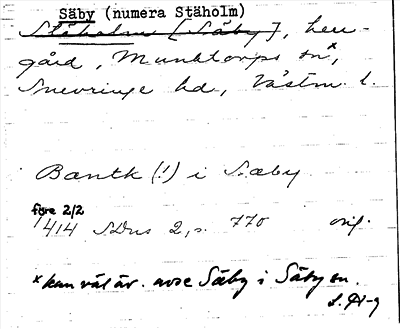 Säby (numera Stäholm)
Stäholm [Säby], herr-
gård, Munktorps sn*,
Snevringe hd, Västm. l.
Bantk (!) i Sæby
före 2/2
1414 SDns 2, s. 770 orig.
* kan väl äv. avse Säby i Säby sn.